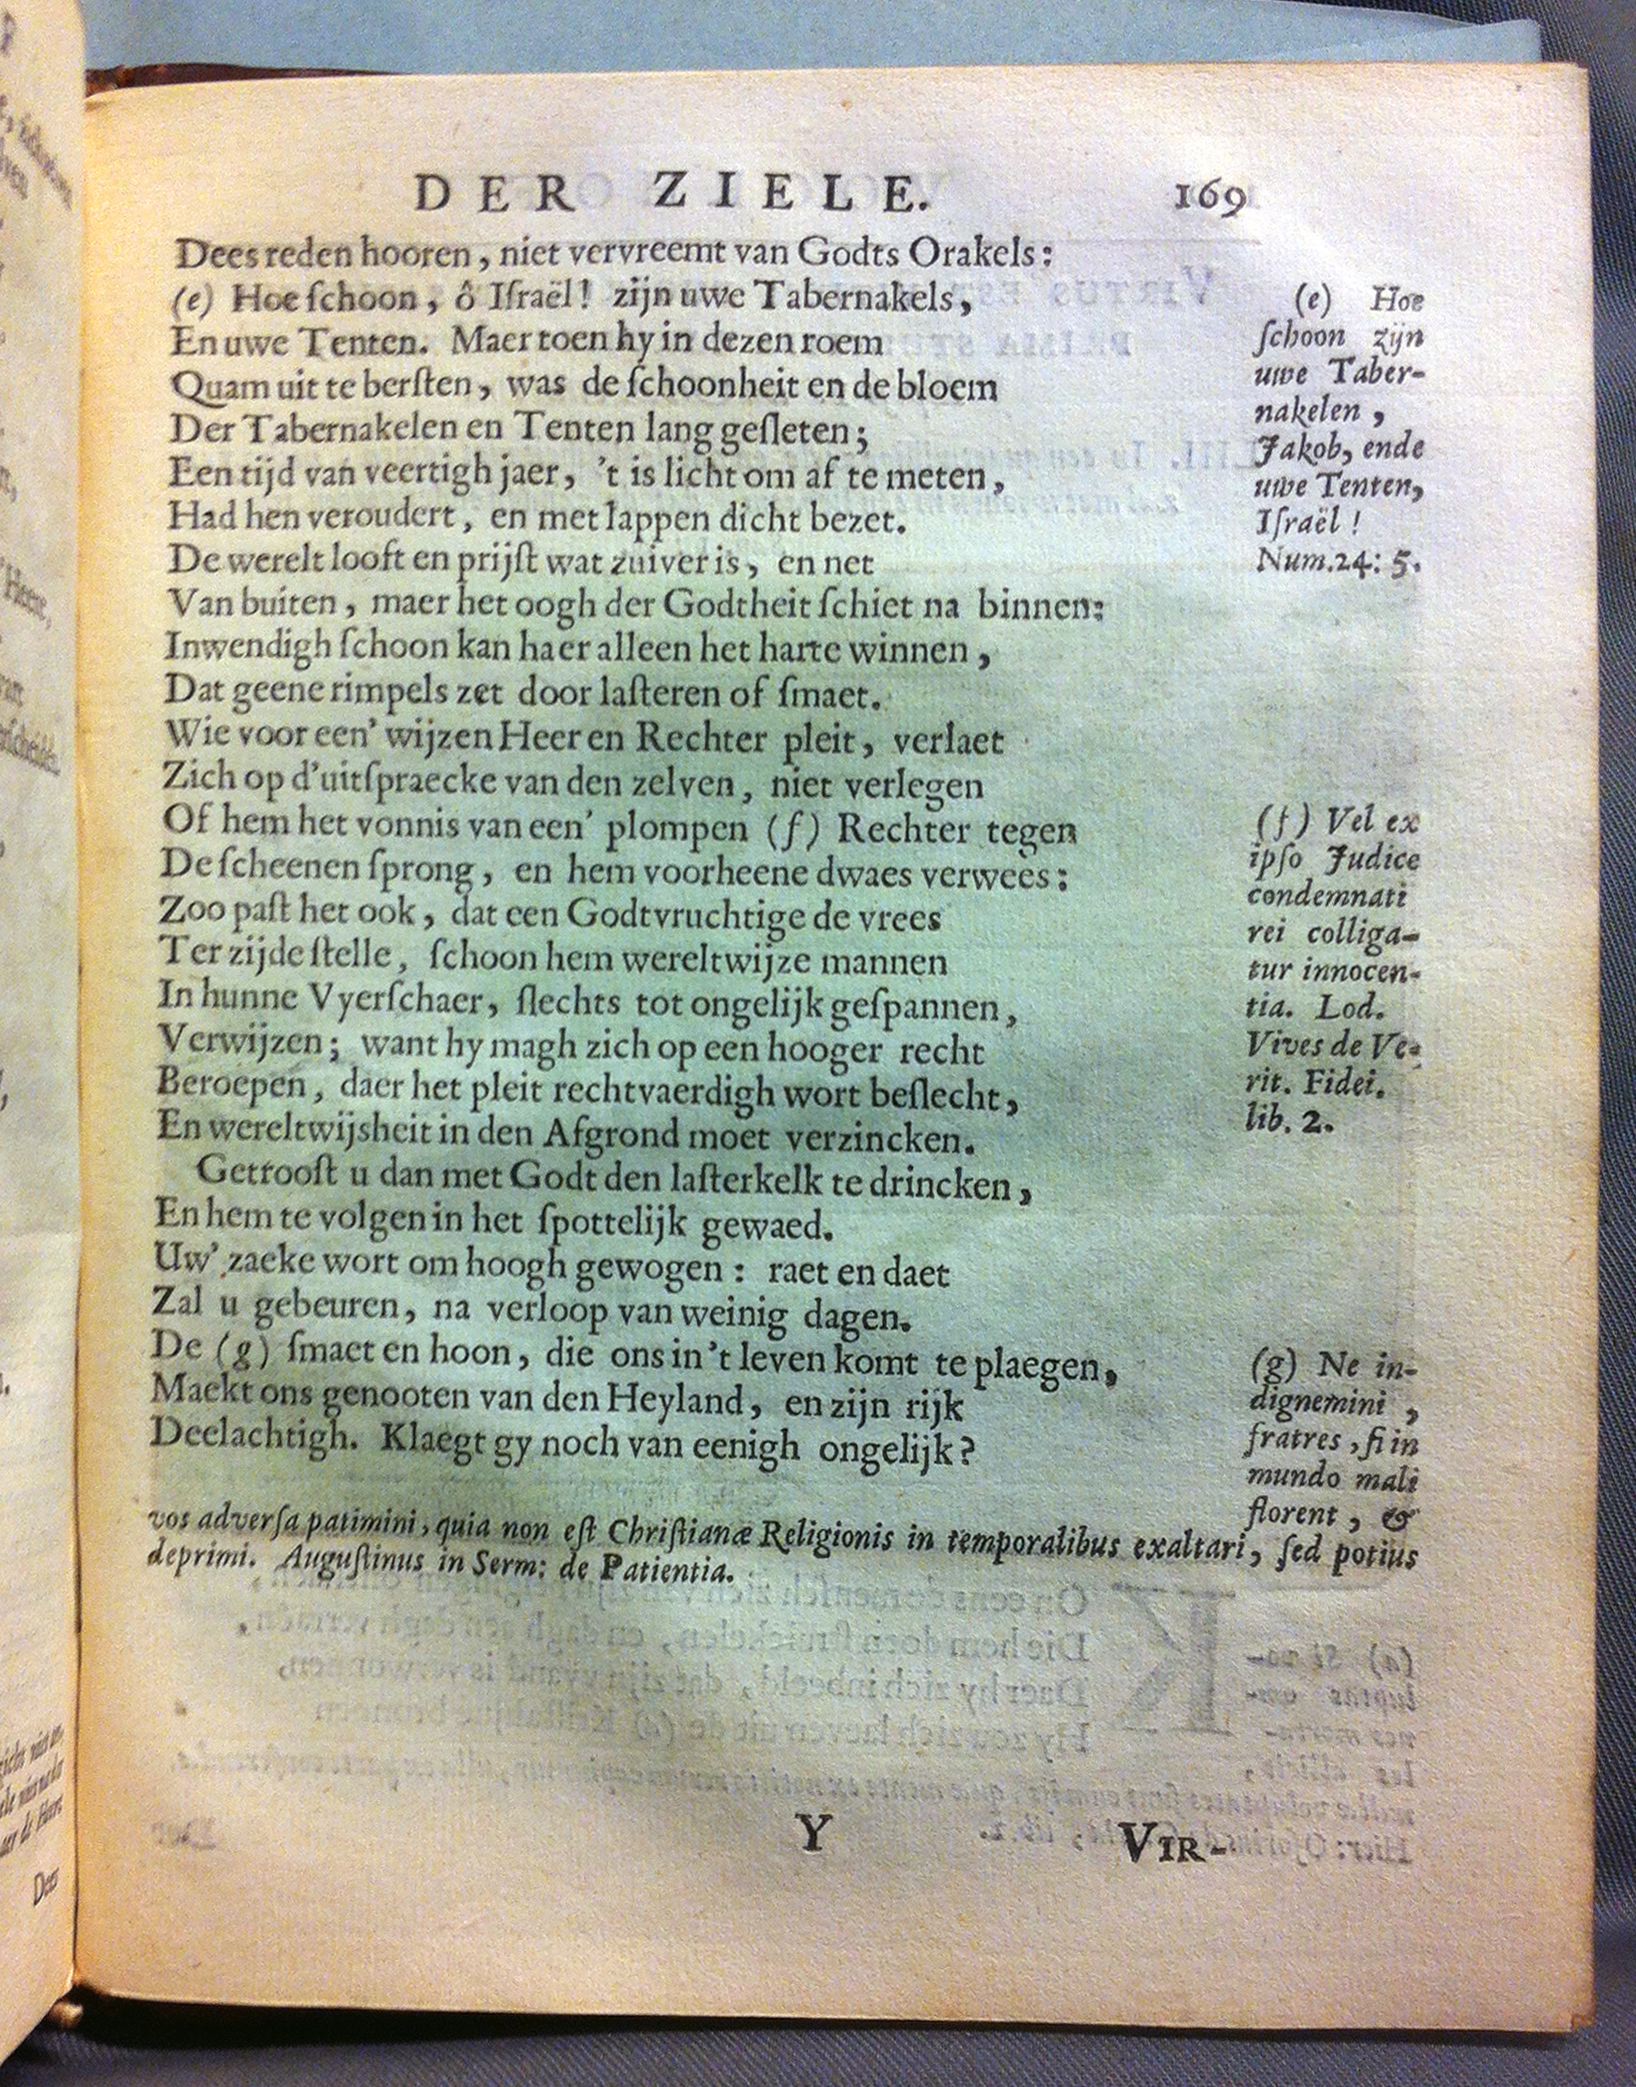 DER ZIELE. 169
Dees reden hooren, niet vervreemt van Godts Orakels:
(e) Hoe ſchoon, ô Iſraël! zijn uwe Tabernakels,
En uwe Tenten. Maer toen hy in dezen roem
Quam uit te berſten, was de ſchoonheit en de bloem
Der Tabernakelen en Tenten lang geſleten;
Een tijd van veertigh jaer, 't is licht om af te meten,
Had hen veroudert, en met lappen dicht bezet.
De werelt looft en prijſt wat zuiver is, en net
Van buiten, maer het oogh der Godtheit ſchiet na binnen:
Inwendigh ſchoon kan haer alleen het harte winnen,
Dat geene rimpels zet door laſteren of ſmaet.
Wie voor een' wijzen Heer en Rechter pleit, verlaet
Zich op d'uitſpraecke van den zelven, niet verlegen
Of hem het vonnis van een' plompen (f) Rechter tegen
De ſcheenen ſprong, en hem voorheene dwaes verwees:
Zoo paſt het ook, dat een Godtvruchtige de vrees
Ter zijde ſtelle, ſchoon hem wereltwijze mannen
In hunne Vyerſchaer, ſlechts tot ongelijk geſpannen,
Verwijzen; want hy magh zich op een hooger recht
Beroepen, daer het pleit rechtvaerdigh wort beſlecht,
En wereltwijsheit in den Afgrond moet verzincken.
Getrooſt u dan met Godt den laſterkelk te drincken,
En hem te volgen in het ſpottelijk gewaed.
Uw' zaeke wort om hoogh gewogen: raet en daet
Zal u gebeuren, na verloop van weinig dagen.
De (g) ſmaet en hoon, die ons in't leven komt te plaegen,
Maekt ons genooten van den Heyland, en zijn rijk
Deelachtigh. Klaegt gy noch van eenigh ongelijk?
(e) Hoe
ſchoon zijn
uwe Taber-
nakelen,
Jakob, ende
uwe Tenten,
Iſraël!
Num.24: 5.
(f) Vel ex
ipſo Judice
condemnati
rei colliga-
tur innocen-
tia. Lod.
Vives de Ve-
rit. Fidei.
lib. 2.
(g) Ne in-
dignemini,
fratres, ſi in
mundo mali
florent, &
vos adverſa patimini, quia non eſt Chriſtianæ Religionis in temporalibus exaltari, ſed potius
deprimi. Auguſtinus in Serm: de Patientia.
Y VIR-
Dees